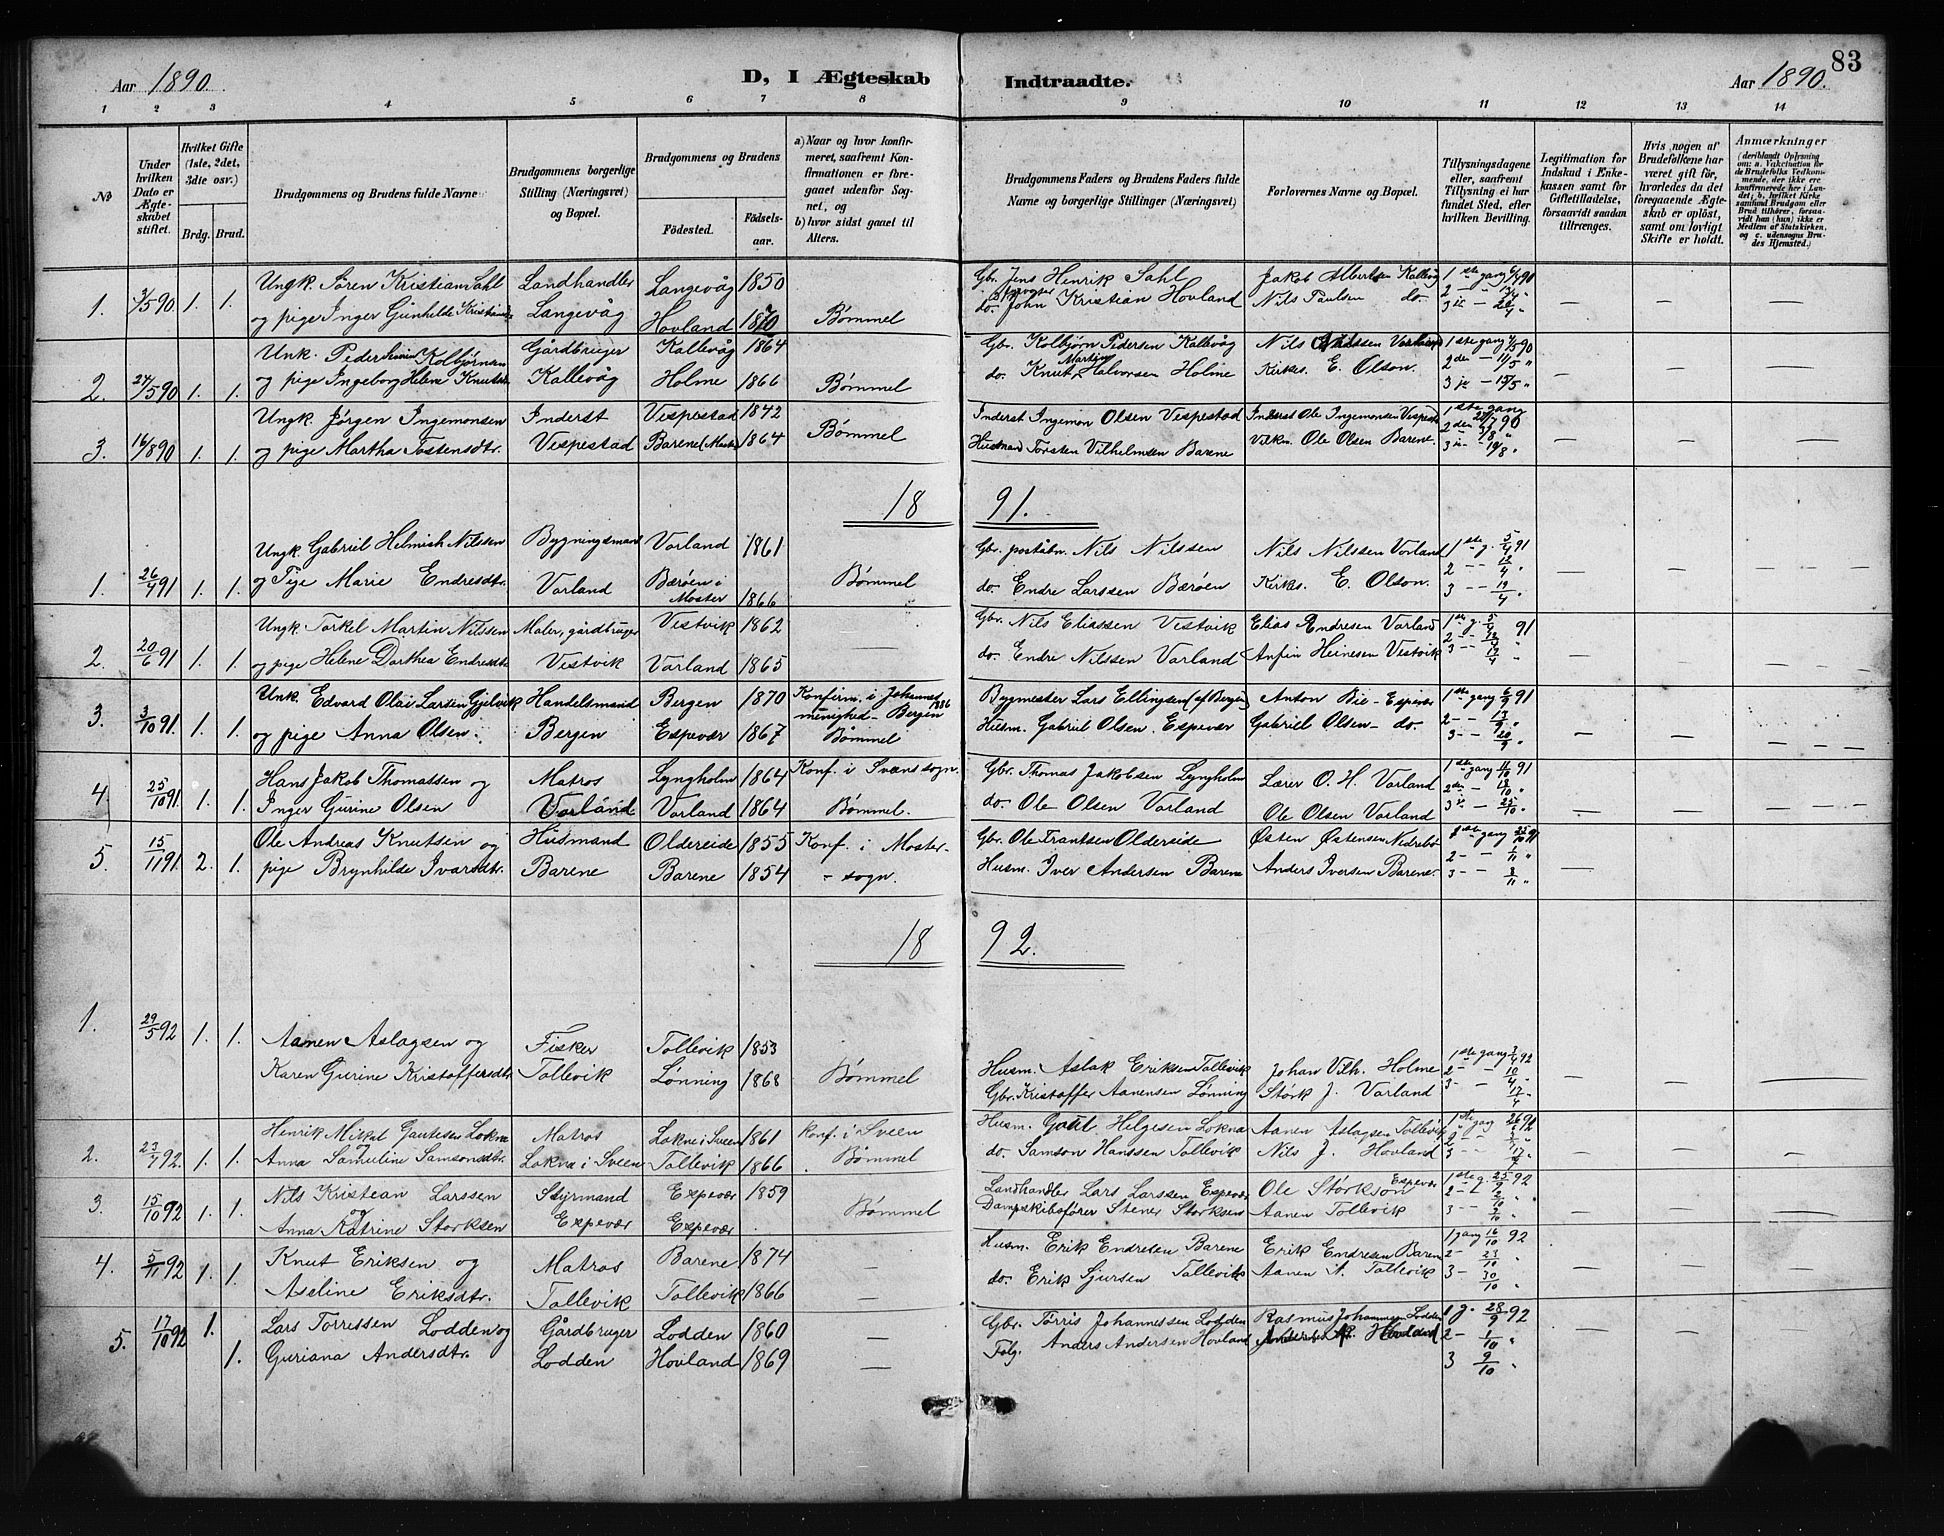 83
Aar 1890. D, I Ægteskab Indtraadte. Aar 1890.
1 2 3 4 5 6 7 8 9 10 11 12 13 14
№
Under hvilken Dato er Ægteskabet stiftet.
Hvilket Gifte (1ste, 2det, 3die osv.)
Brdg. Brud.
Brudgommens og Brudens fulde Navne
Brudgommens borgerlige Stilling (Næringsvei) og Bopæl.
Brudgommens og Brudens
Födested. Födselsaar.
a) Naar og hvor konfirmeret, saafremt Konfirmationen er foregaaet udenfor Sognet, og
b) hvor sidst gaaet til Alters.
Brudgommens Faders og Brudens Faders fulde Navne og borgerlige Stillinger (Næringsvei)
Forlovernes Navne og Bopæl.
Tillysningsdagene eller, saafremt Tillysning ei har fundet Sted, efter hvilken Bevilling.
Legitimation for Indskud i Enkekassen samt for Giftetilladelse, forsaavidt saadan tiltrænges.
Hvis nogen af Brudefolkene har været gift för, hvorledes da det foregaaende Ægteskab er oplöst, samt om lovligt Skifte er holdt.
Anmærkninger
(deriblandt Oplysning om: a. Vakcination för de Brudefolks Vedkommende, der ikke ere konfirmerede her i Landet; b. hvilket Kirkesamfund Brudgom eller Brud tilhörer, forsaavidt han (hun) ikke er Medlem af Statskirken, og c. udensogns Brudes Hjemsted.)
1. 3/5 90 1. 1. Ungk. Søren Kristian Sahl Landhandler Langevåg 1850 Gbr. Jens Henrik Sahl Jakob Albertsen Kallevåg 1ste gang 6/4 90
og pige Inger Gunhilde Langevåg Hovland 1870 Bømmel do. John Kristian Hovland Nils Paulsen do. 2 - 13/4 "
3je -
2. 24/5 90 1. 1. Unk. Peder Kolbjørnsen Gårdbruger Kallevåg 1864 Gbr. Kolbjørn Pedersen Kallevåg Nils 1ste gang 4/5 90
og pige Ingeborg Helene Knuts Kallevåg Holme 1866 Bømmel do. Knut Martin Halvorsen Holme Kirkes. E. Olson. 2den - 11/5 "
3je - 15/5 "
3. 16/8 90 1. 1. Ungk. Jørgen Ingemonsen Inderst Vespestad 1842 Bømmel Inderst Ingemon Olsen Vespestad Inderst Ole Ingemonsen 1ste gang
og pige Martha Tostensdtr. Vespestad Barene (Moster) 1864 Husmand Torsten Vilhelmsen Barene Ole Olsen Barene. 2den
3je - 10/8 "
18 91.
1. 26/4 91 1. 1. Ungk. Gabriel Helmich Nilssen Bygningsmand Vorland 1861 Gbr. poståbn. Nils Nilssen Nils Nilssen Vorland 1ste g. 5/4 91
og Pige Marie Endresdtr. Vorland Bærøen i Moster 1866 Bømmel do. Endre Larssen Bærøen Kirkes. E. Olson. 2 - - 12/4 "
3 - - 19/4
2. 20/6 91 1. 1. Ungk. Torkel Martin Nilssen Maler, gårdbruger Vestvik 1862 Gbr. Nils Eliassen Vestvik Elias Andresen Vorland 1ste g. 5/4 91
og pige Helene Dorthea Endresdtr Vestvik Vorland 1865 do. Endre Nilssen Vorland Anfin Heinesen Vestvik 2 - - 12/4 "
3 - - 19/4 "
3. 3/10 91 1. 1. Unk. Edvard Olai Larsen Gjelvik Handelsmand Bergen 1870 Konfirm. i Johannesmenighed - Bergen 1886 Bygmester Lars Ellingsen (af Bergen) Anton Bie - Espevær 1ste gang 6/9 91
og pige Anna Olsen. Bergen Espevær 1867 Bømmel Husm. Gabriel Olsen. Espevær Gabriel Olsen - do. 2 - - 13/9 "
3 - - 20/9 "
4. 25/10 91 1. 1. Hans Jakob Thomassen og Matros Lyngholm 1864 Konf. i Sveens sogn. Gbr. Thomas Jakobsen Lyngholm Lærer O. H. Vorland 1ste gang 11/10 91
Inger Gurine Olsen Vorland Vorland 1864 Bømmel. do. Ole Olsen Vorland Ole Olsen Vorland 2den - 18/10 "
3je - 25/10 "
5. 15/11 91 2. 1. Ole Andreas Knutsen og Husmand Oldereide 1855 Konf. i Moster- Gbr. Ole Frantsen Oldereide Østen Østensen Nedrebø 1ste gang 25/10 91
pige Brynhilde Ivarsdtr. Barene Barene 1854 - sogn. Husm. Iver Andersen Barene Anders Iversen Barene. 2 - - 1/11 "
3 - - 8/11 "
18 92.
1. 29/5 92 1. 1. Aanen Aslagsen og Fisker Tollevik 1853 Husm. Aslak Eriksen Tollevik Johan Vilh. Holme 1ste gang 3/4 92
Karen Gurine Kristoffersdtr Tollevik Lønning 1868 Bømmel Gbr. Kristoffer Aanensen Lønning Størk J. Vorland 2 - - 10/4 "
3 - - 17/4 "
2. 23/7 92. 1. 1. Henrik Mikal Gautesen Lokna Matros Lokne i Sveen 1861 Konf. i Sveen Husm. Gaut Helgesen Lokna Aanen Aslagsen Tollevik 1ste gang 92
Anna Samuline Samsonsdtr. Lokna i Sveen Tollevik 1866 Bømmel do. Samson Hanssen Tollevik Nils J. Hovland 2 - -
3 - -
3. 15/10 92 1. 1. Nils Kristean Larssen Styrmand Espevær 1859 Landhandler Lars Larssen Espevær Ole Størkson Espevær 1ste g. 25/9 92
og Anna Katrine Størksen Espevær Espevær . Bømmel Dampskibsfører Stener Størksen Aanen Tollevik 2 -
3 -
4. 5/11 92 1. 1. Knut Eriksen og Matros Barene 1874 Husm. Erik Endresen Barene Erik Endresen Barene 1 gang 16/10 92
Aseline Eriksdtr. Tollevik Tollevik 1866 do. Erik Sjursen Tollevik Aanen A. Tollevik 2 - 23/10 "
3 - 30/10 "
5. 17/10 92 1. 1. Lars Torressen Lodden og Gårdbruger Lodden 1860 Gbr. Torris Johannessen Lodden Rasmus Johannessen Lodden 1 g. 28/9 92
Guriana Andersdtr. Lodden Hovland 1869 Følg. Anders Andersen Hovland Hovland 2 - 1/10 "
3 9/10 "